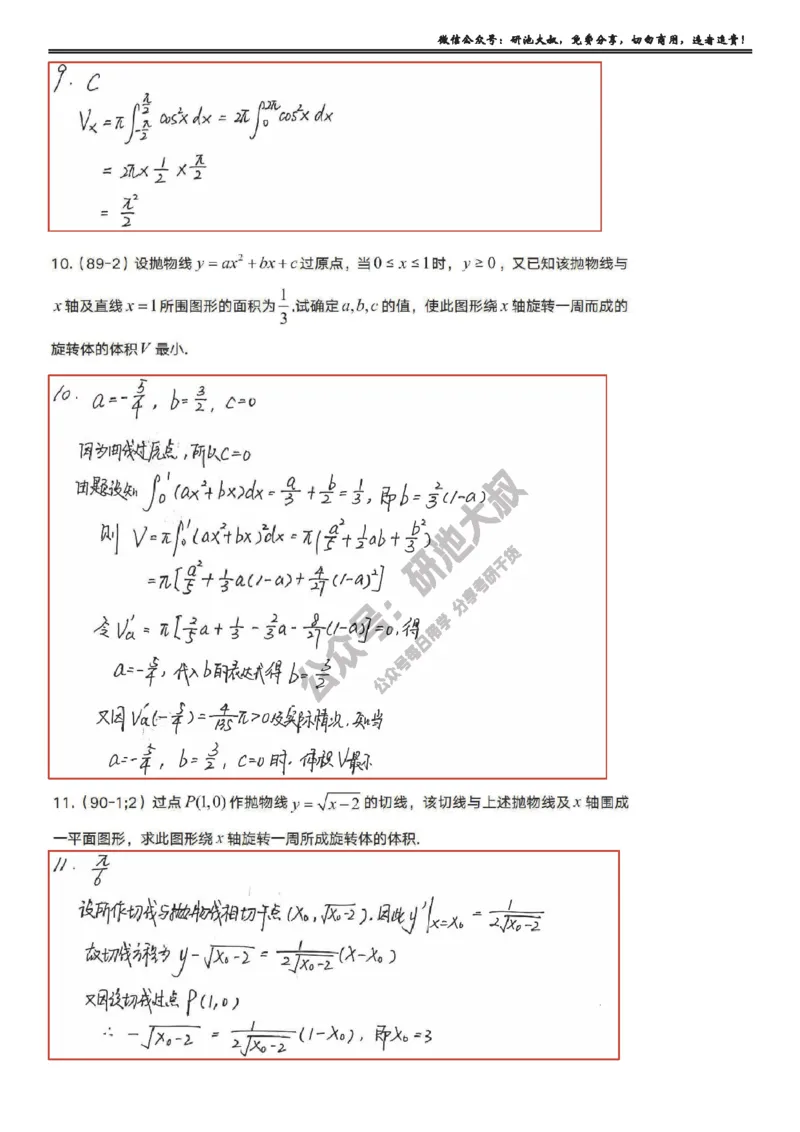 微信公众号：研池大叔，免费分享，切勿商用，违者追责！
9. C
Vx = π∫_{-π/2}^{π/2} cos²x dx = 2π∫_0^{2π} cos²x dx
= 2π × 1/2 × π/2
= π²/2
10.（89-2）设抛物线 y = ax² + bx + c 过原点，当 0 ≤ x ≤ 1 时，y ≥ 0，又已知该抛物线与
x 轴及直线 x = 1 所围图形的面积为 1/3 .试确定 a,b,c 的值，使此图形绕 x 轴旋转一周而成的
旋转体的体积 V 最小.
10. a = -5/4 , b = 3/2 , c = 0
因为曲线过原点，所以 c = 0
由题设知 ∫_0^1 (ax² + bx)dx = a/3 + b/2 = 1/3 , 即 b = 2/3 (1-a)
则 V = π∫_0^1 (ax² + bx)²dx = π(a²/5 + 1/2 ab + b²/3)
= π[a²/5 + 1/3 a(1-a) + 4/27 (1-a)²]
令 V'a = π[2/5 a + 1/3 - 2/3 a - 8/27 (1-a)] = 0, 得
a = -5/4 , 代入 b 的表达式得 b = 3/2
又因 V''a(-5/4) = 4/135 π > 0 及实际情况, 知当
a = -5/4 , b = 3/2 , c = 0 时. 体积 V 最小
公众号：研池大叔
公众号每日带学 分享考研干货
11.（90-1;2）过点 P(1,0) 作抛物线 y = √(x-2) 的切线，该切线与上述抛物线及 x 轴围成
一平面图形，求此图形绕 x 轴旋转一周所成旋转体的体积.
11. π/6
设所作切线与抛物线相切于点 (x₀, √(x₀-2)). 因此 y'|_{x=x₀} = 1/(2√(x₀-2))
故切线方程为 y - √(x₀-2) = 1/(2√(x₀-2)) (x-x₀)
又因该切线过点 P(1,0)
∴ -√(x₀-2) = 1/(2√(x₀-2)) (1-x₀) , 即 x₀ = 3